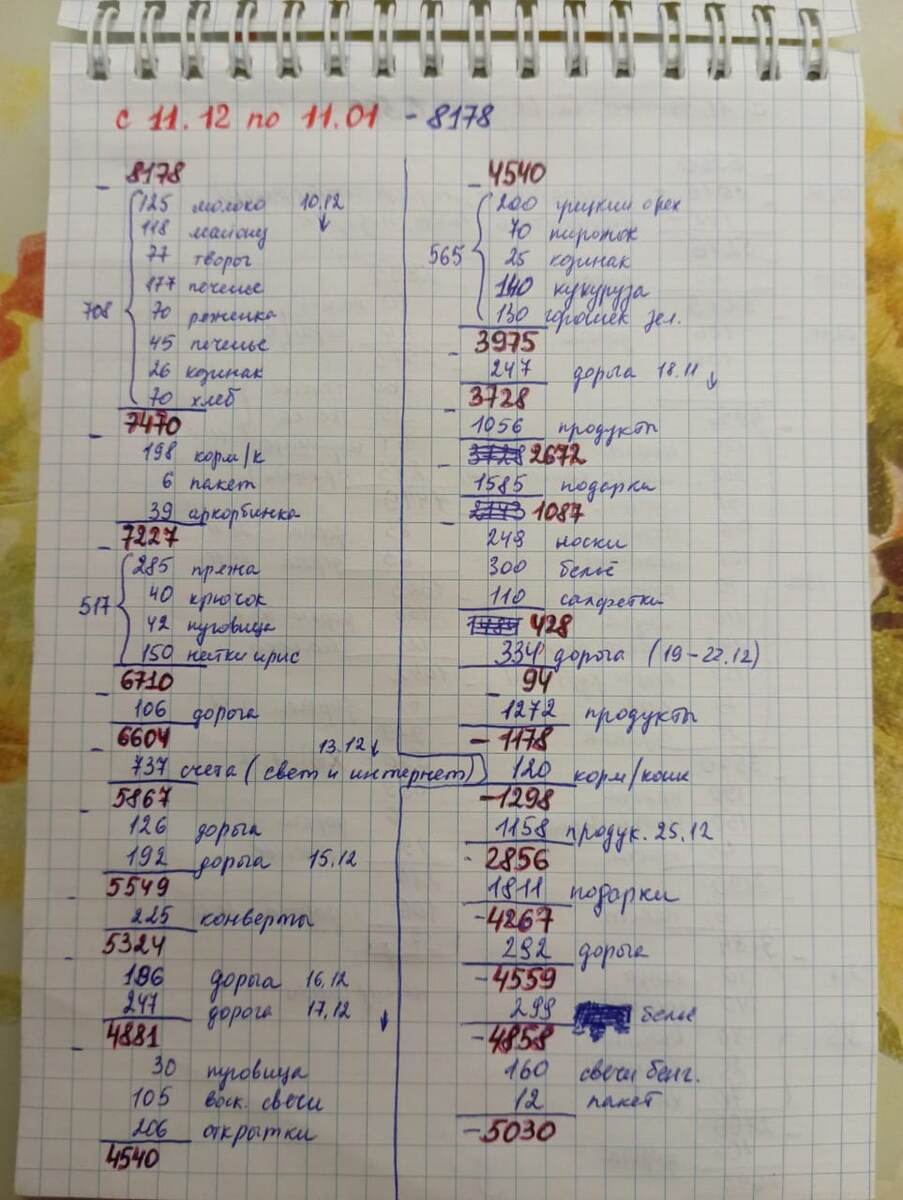 с 11.12 по 11.01 - 8178
- 8178
125 молоко 10.12 ↓
118 майонез
77 творог
177 печенье
708 { 70 ряженка
45 печенье
26 козинак
70 хлеб
- 7470
198 корм/к
6 пакет
39 аркорбинка
7227
- 285 пряжа
517 { 40 крючок
42 пуговица
150 нитки ирис
- 6710
106 дорога
- 6604
13.12 ↓
737 счета (свет и интернет)
- 5867
126 дорога
192 дорога 15.12
- 5549
225 конверты
- 5324
196 дорога 16.12
247 дорога 17.12 ↓
- 4881
30 пуговица
105 воск. свечи
206 открытки
4540
- 4540
200 грецкий орех
70 пирожок
565 { 25 козинак
140 кукуруза
130 горошек зел.
- 3975
247 дорога 18.11 ↓
- 3728
1056 продукты
- 3728 2672
1585 подарки
- 2143 1087
249 носки
300 бельё
110 салфетки
428
334 дорога (19-22.12)
- 94
1272 продукты
- 1178
120 корм/кошк
-1298
1158 продук. 25.12
- 2856
1811 подарки
-4267
292 дорога
-4559
299 бельё
-4858
160 свечи бенг.
12 пакет
-5030